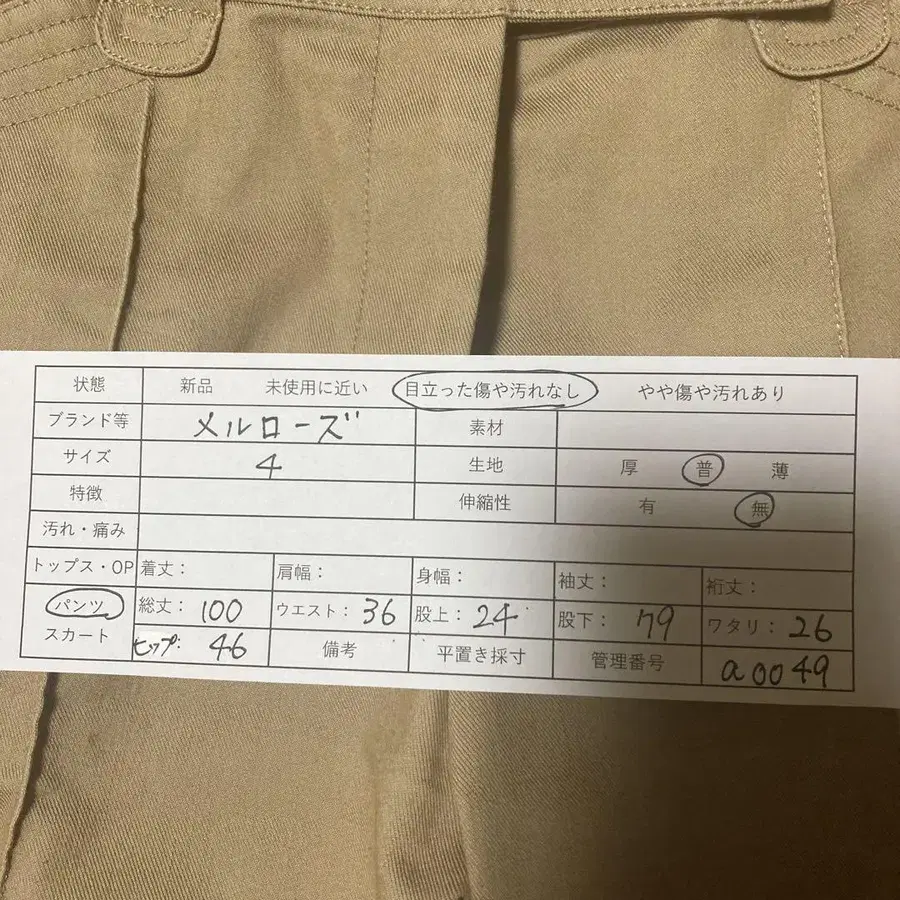 状態 新品 未使用に近い 目立った傷や汚れなし やや傷や汚れあり
ブランド等 メルローズ 素材
サイズ 4 生地 厚 普 薄
特徴 伸縮性 有 無
汚れ・痛み
トップス・OP 着丈： 肩幅： 身幅： 袖丈： 裄丈：
パンツ 総丈： 100 ウエスト： 36 股上： 24 股下： 79 ワタリ： 26
スカート ヒップ: 46 備考 平置き採寸 管理番号 a0049